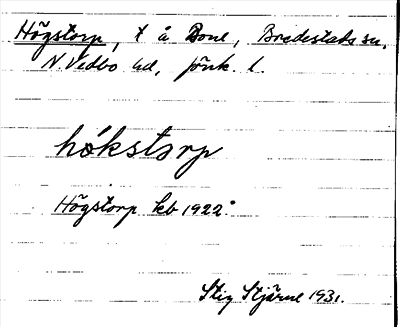 Högstorp, t å Boul, Bredestads sn,
N. Vedbo hd, Jönk. l.
hökstorp
Högstorp kb 1922
Stig Stjärne 1931.